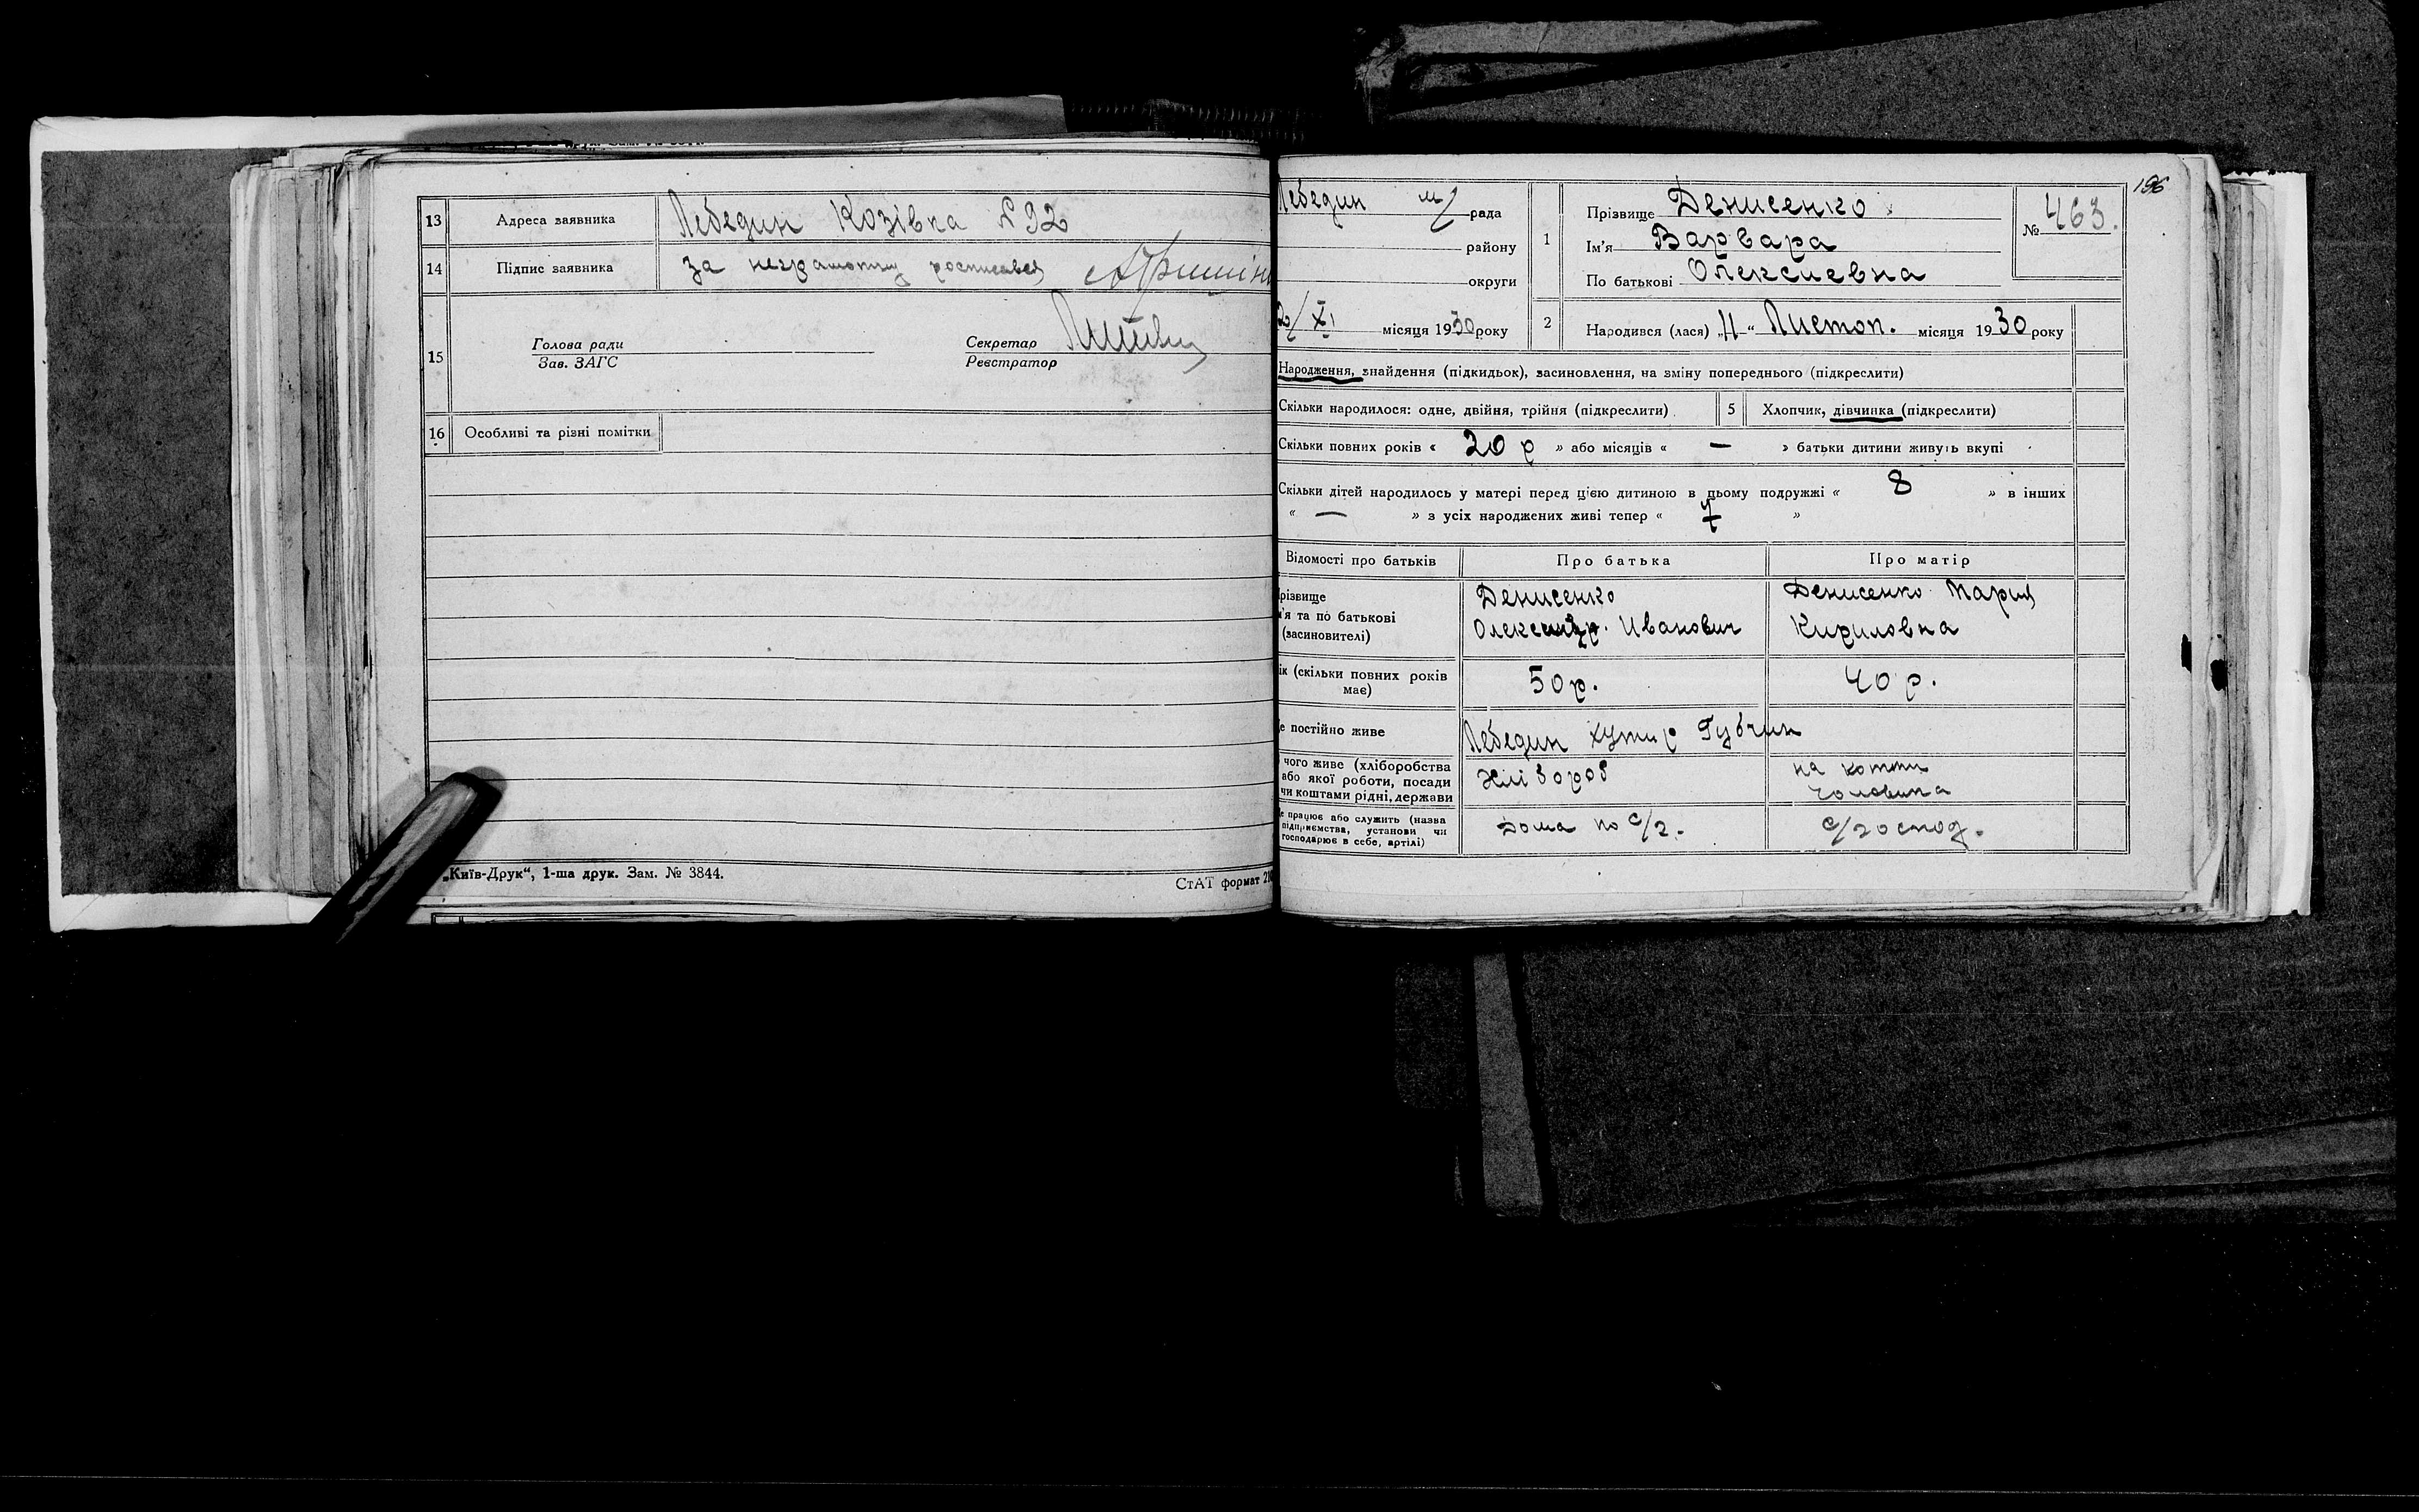 13 Адреса заявника Лебедин Козівка №92
14 Підпис заявника за неграмотну росписався
15 Голова ради Секретар
Зав. ЗАГС Реєстратор
16 Особливі та різні помітки
„Київ-Друк“, 1-ша друк. Зам. № 3844.
СтАТ формат
196
Лебедин м/ рада
району
округи
XI місяця 1930 року
1 Прізвище Денисенко
Ім'я Варвара
По батькові Олексиевна
№ 463.
2 Народився (лася) „11“ Листоп. місяця 1930 року
Народження, знайдення (підкидьок), засиновлення, на зміну попереднього (підкреслити)
Скільки народилося: одне, двійня, трійня (підкреслити) 5 Хлопчик, дівчинка (підкреслити)
Скільки повних років « 20 р » або місяців « — » батьки дитини живуть вкупі
Скільки дітей народилось у матері перед цією дитиною в цьому подружжі « 8 » в інших
« — » з усіх народжених живі тепер « 7 »
Відомості про батьків Про батька Про матір
різвище Денисенко Денисенко Мария
'я та по батькові Иванович Кириловна
(засиновителі)
ік (скільки повних років має) 50 р. 40 р.
е постійно живе Лебедин хутир Губчин
чого живе (хліборобства або якої роботи, посади чи коштами рідні, держави Хлібороб на кошти чоловика
е працює або служить (назва підприємства, установи чи господарює в себе, артілі) Дома по с/г. с/господ.